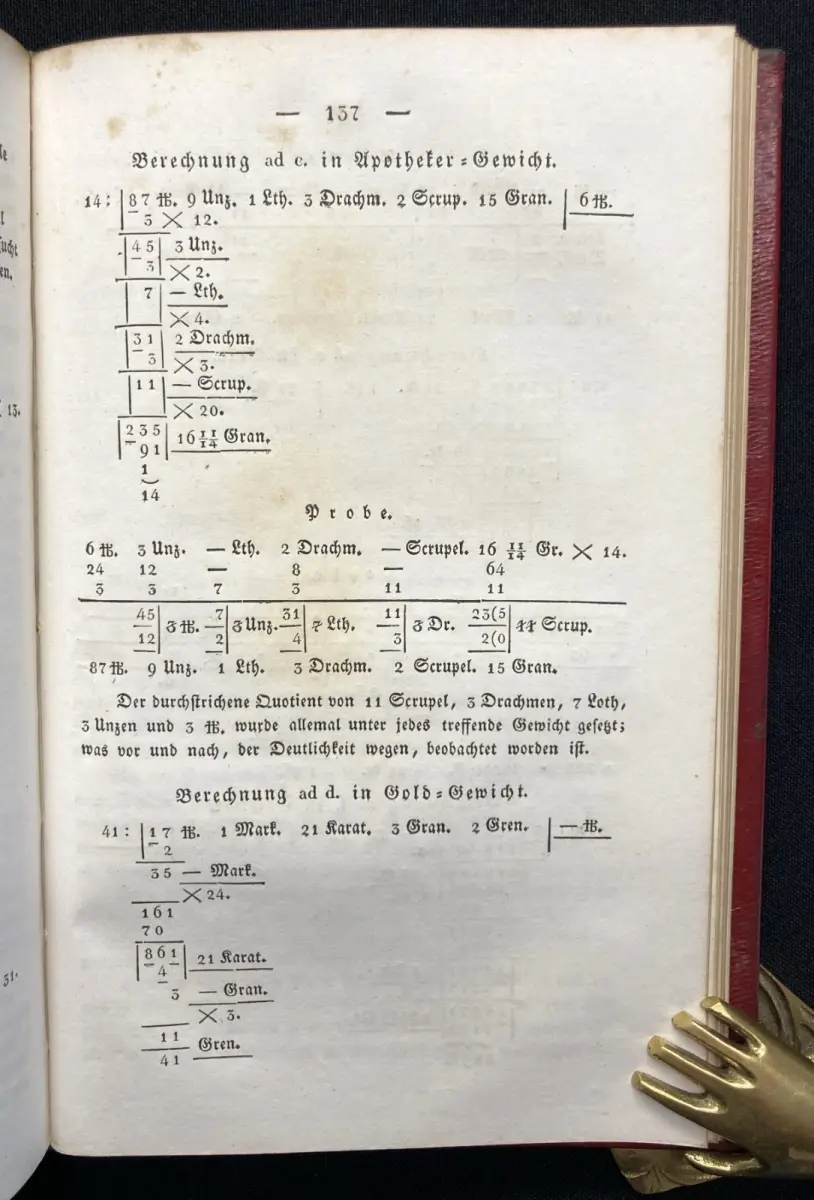 — 137 —
Berechnung ad c. in Apotheker=Gewicht.
14: 87 ℔. 9 Unz. 1 Lth. 3 Drachm. 2 Scrup. 15 Gran. 6 ℔.
3 × 12.
45 3 Unz.
3 × 2.
7 — Lth.
× 4.
31 2 Drachm.
3 × 3.
11 — Scrup.
× 20.
235 16 11/14 Gran.
91
1
14
Probe.
6 ℔. 3 Unz. — Lth. 2 Drachm. — Scrupel. 16 11/14 Gr. × 14.
24 12 — 8 — 64
3 3 7 3 11 11
45 3 ℔. 7 3 Unz. 31 7 Lth. 11 3 Dr. 23(5 11 Scrup.
12 2 4 3 2(0
87 ℔. 9 Unz. 1 Lth. 3 Drachm. 2 Scrupel. 15 Gran.
Der durchstrichene Quotient von 11 Scrupel, 3 Drachmen, 7 Loth,
3 Unzen und 3 ℔. wurde allemal unter jedes treffende Gewicht gesetzt;
was vor und nach, der Deutlichkeit wegen, beobachtet worden ist.
Berechnung ad d. in Gold=Gewicht.
41: 17 ℔. 1 Mark. 21 Karat. 3 Gran. 2 Gren. — ℔.
2
35 — Mark.
× 24.
161
70
861 21 Karat.
4
3 — Gran.
× 3.
11
41 Gren.
13.
31.